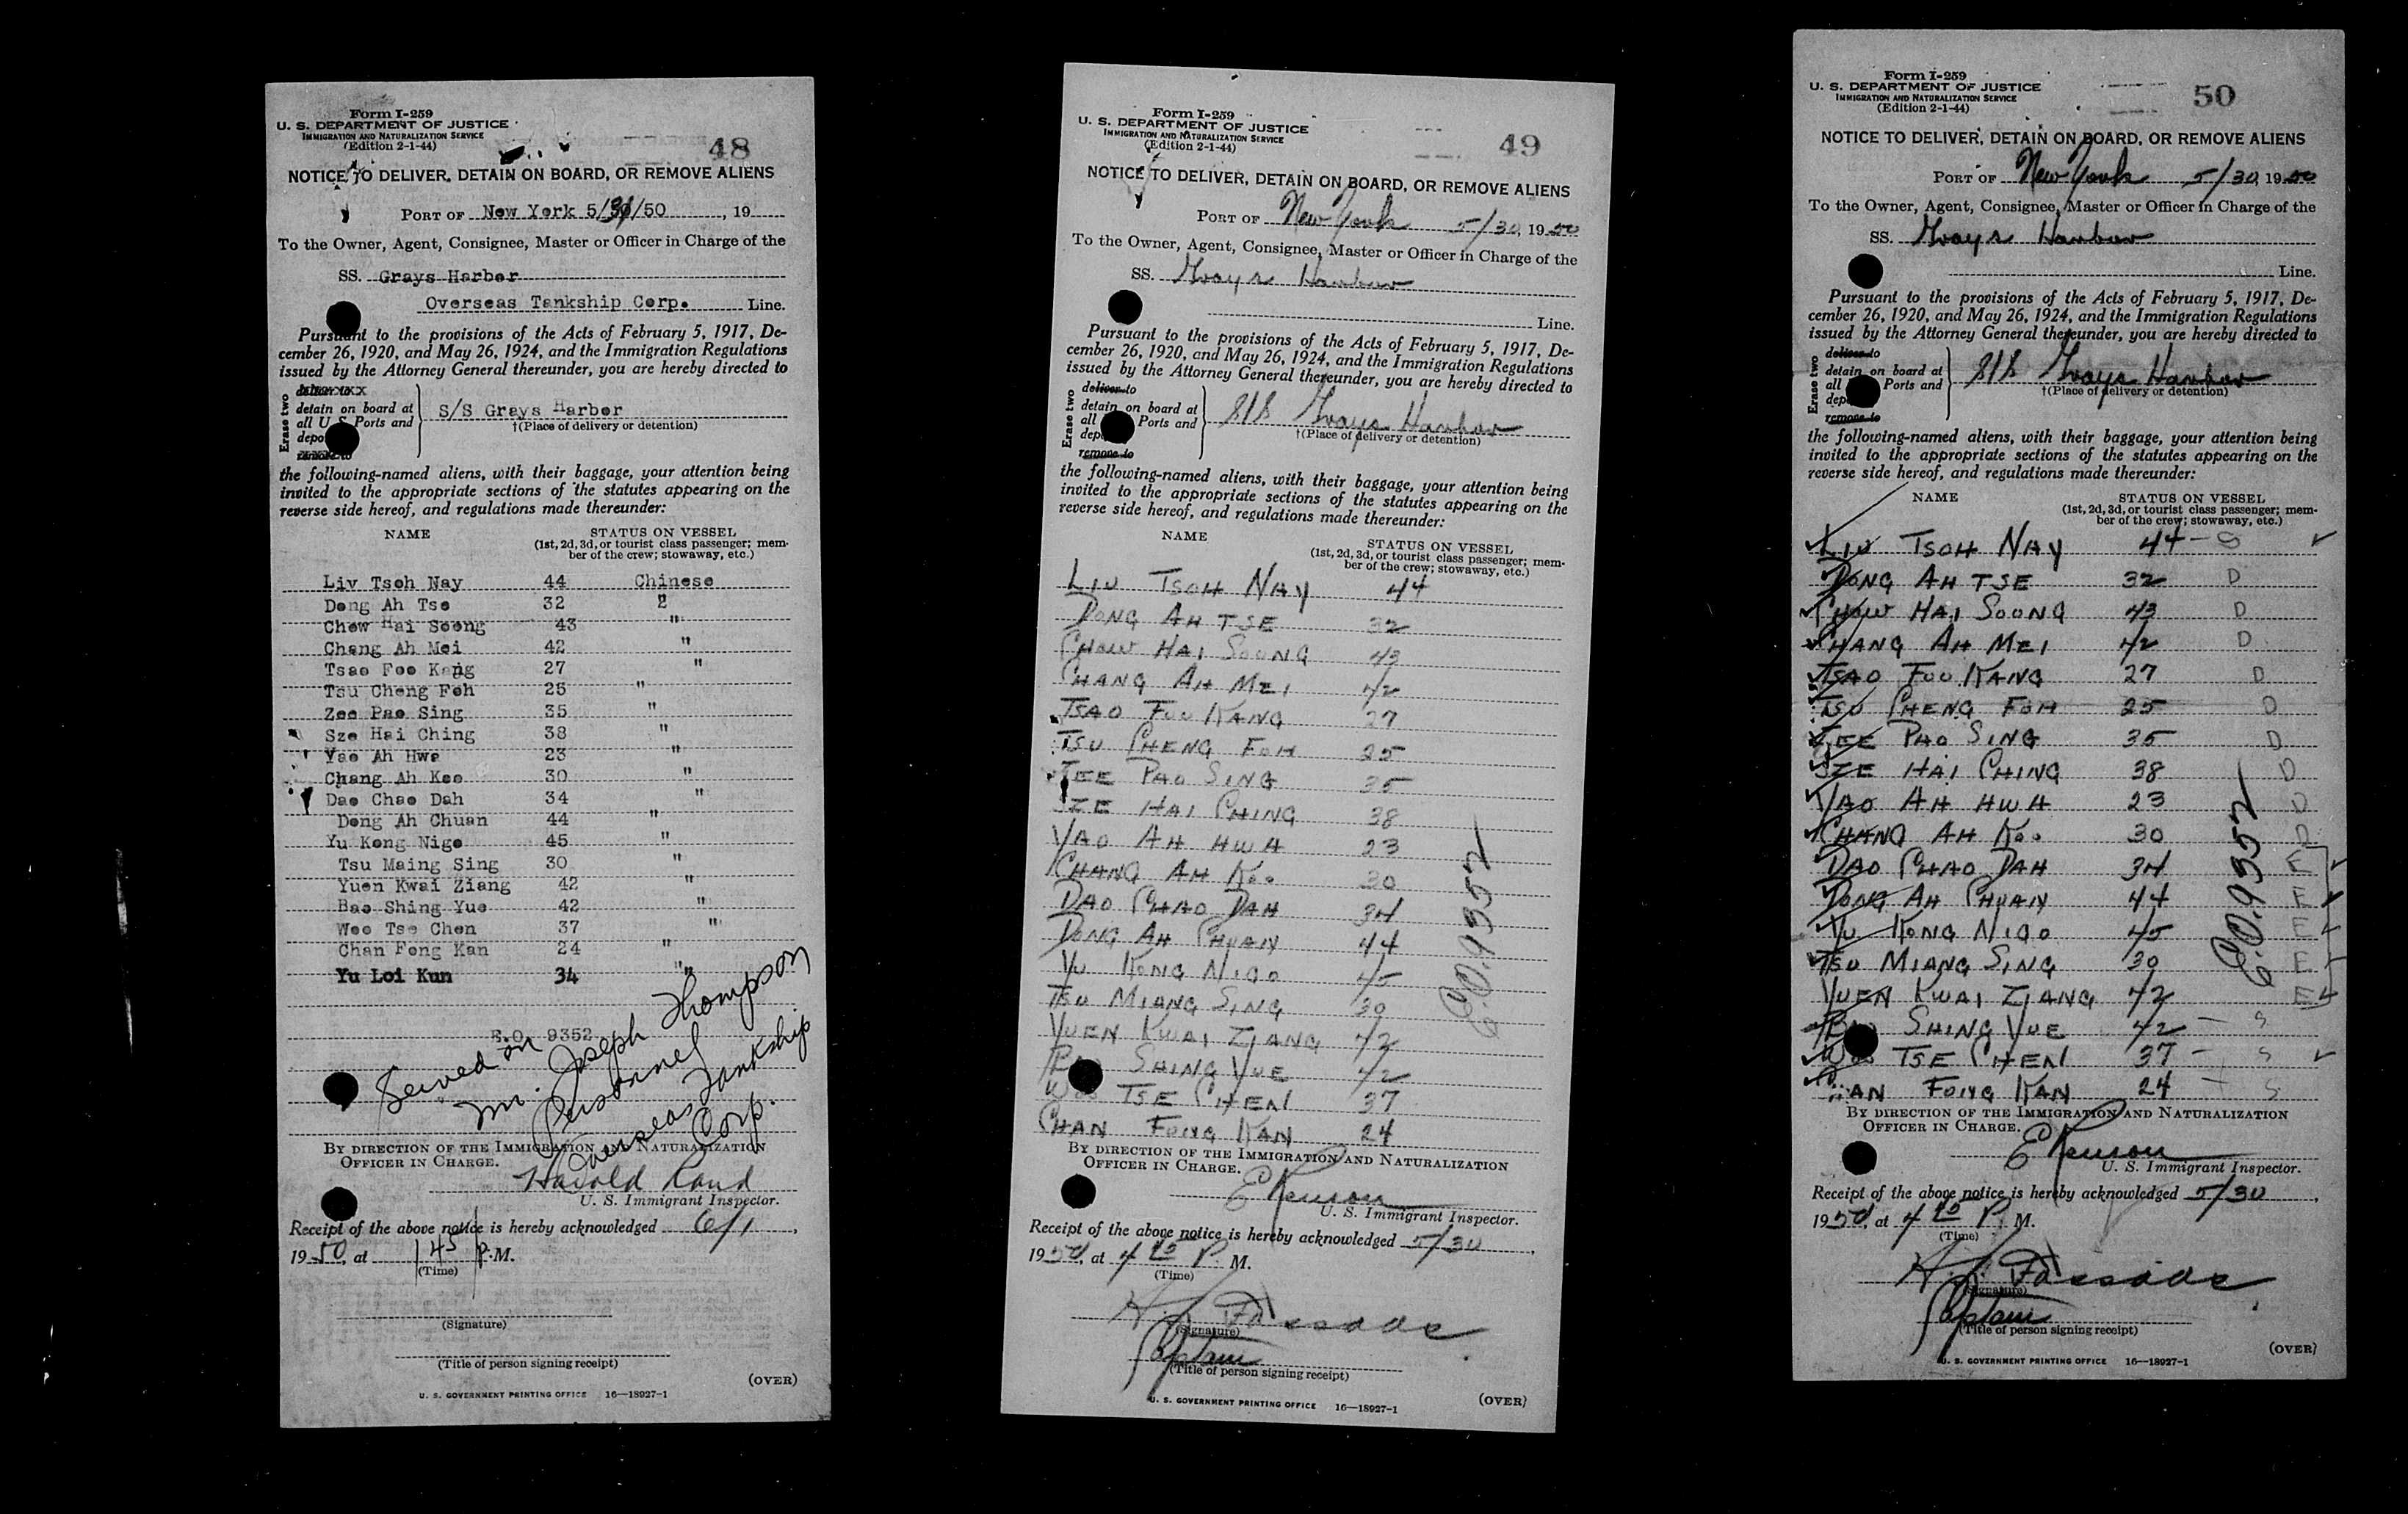 Form I-259
U. S. DEPARTMENT OF JUSTICE
IMMIGRATION AND NATURALIZATION SERVICE
(Edition 2-1-44)
48
NOTICE TO DELIVER, DETAIN ON BOARD, OR REMOVE ALIENS
PORT OF New York 5/31/50, 19
To the Owner, Agent, Consignee, Master or Officer in Charge of the
SS. Grays Harbor
Overseas Tankship Corp. Line.
Pursuant to the provisions of the Acts of February 5, 1917, De-
cember 26, 1920, and May 26, 1924, and the Immigration Regulations
issued by the Attorney General thereunder, you are hereby directed to
Erase two
detain on board at
all U S Ports and
S/S Grays Harbor
†(Place of delivery or detention)
remove to
the following-named aliens, with their baggage, your attention being
invited to the appropriate sections of the statutes appearing on the
reverse side hereof, and regulations made thereunder:
NAME STATUS ON VESSEL
(1st, 2d, 3d, or tourist class passenger; mem-
ber of the crew; stowaway, etc.)
Liv Tsoh Nay 44 Chinese
Dong Ah Tse 32 "
Chow Hai Soong 43 "
Chang Ah Mei 42 "
Tsao Foo Kang 27 "
Tsu Cheng Foh 25 "
Zee Pao Sing 35 "
Sze Hai Ching 38 "
Yao Ah Hwa 23 "
Chang Ah Koo 30 "
Dao Chao Dah 34 "
Dong Ah Chuan 44 "
Yu Kong Nigo 45 "
Tsu Maing Sing 30 "
Yuen Kwai Ziang 42 "
Bao Shing Yue 42 "
Woo Tse Chen 37 "
Chan Fong Kan 24 "
Yu Loi Kun 34 "
E.O. 9352
Served on
Mr. Joseph Thompson
Personnel
Overseas Tankship
Corp.
BY DIRECTION OF THE IMMIGRATION AND NATURALIZATION
OFFICER IN CHARGE.
Harold Rand
U. S. Immigrant Inspector.
Receipt of the above notice is hereby acknowledged 6/1,
1950, at 1 45 P.M.
(Time)
(Signature)
(Title of person signing receipt)
(OVER)
U. S. GOVERNMENT PRINTING OFFICE 16—18927-1
Form I-259
U. S. DEPARTMENT OF JUSTICE
IMMIGRATION AND NATURALIZATION SERVICE
(Edition 2-1-44)
49
NOTICE TO DELIVER, DETAIN ON BOARD, OR REMOVE ALIENS
PORT OF New York 5/30, 1950
To the Owner, Agent, Consignee, Master or Officer in Charge of the
SS. Grays Harbor
Line.
Pursuant to the provisions of the Acts of February 5, 1917, De-
cember 26, 1920, and May 26, 1924, and the Immigration Regulations
issued by the Attorney General thereunder, you are hereby directed to
Erase two
deliver to
detain on board at
all Ports and
S/S Grays Harbor
†(Place of delivery or detention)
remove to
the following-named aliens, with their baggage, your attention being
invited to the appropriate sections of the statutes appearing on the
reverse side hereof, and regulations made thereunder:
NAME STATUS ON VESSEL
(1st, 2d, 3d, or tourist class passenger; mem-
ber of the crew; stowaway, etc.)
LIU TSOH NAY 44
DONG AH TSE 32
CHOW HAI SOONG 43
CHANG AH MEI 42
TSAO FOO KANG 27
TSU CHENG FOH 25
ZEE PAO SING 35
SZE HAI CHING 38
YAO AH HWA 23
CHANG AH KOO 30
DAO CHAO DAH 34
DONG AH CHUAN 44
YU KONG NIGO 45
TSU MIANG SING 30
YUEN KWAI ZIANG 42
SHING YUE 42
WOO TSE CHEN 37
CHAN FONG KAN 24
E.O. 9352
BY DIRECTION OF THE IMMIGRATION AND NATURALIZATION
OFFICER IN CHARGE.
U. S. Immigrant Inspector.
Receipt of the above notice is hereby acknowledged 5/30,
1950, at 4 15 P. M.
(Time)
(Signature)
Captain
(Title of person signing receipt)
(OVER)
U. S. GOVERNMENT PRINTING OFFICE 16—18927-1
Form I-259
U. S. DEPARTMENT OF JUSTICE
IMMIGRATION AND NATURALIZATION SERVICE
(Edition 2-1-44)
50
NOTICE TO DELIVER, DETAIN ON BOARD, OR REMOVE ALIENS
PORT OF New York 5/30, 1950
To the Owner, Agent, Consignee, Master or Officer in Charge of the
SS. Grays Harbor
Line.
Pursuant to the provisions of the Acts of February 5, 1917, De-
cember 26, 1920, and May 26, 1924, and the Immigration Regulations
issued by the Attorney General thereunder, you are hereby directed to
Erase two
deliver to
detain on board at
all Ports and
S/S Grays Harbor
†(Place of delivery or detention)
remove to
the following-named aliens, with their baggage, your attention being
invited to the appropriate sections of the statutes appearing on the
reverse side hereof, and regulations made thereunder:
NAME STATUS ON VESSEL
(1st, 2d, 3d, or tourist class passenger; mem-
ber of the crew; stowaway, etc.)
LIU TSOH NAY 44 - S
DONG AH TSE 32 D
CHOW HAI SOONG 43 D
CHANG AH MEI 42 D
TSAO FOO KANG 27 D
TSU CHENG FOH 25 D
ZEE PAO SING 35 D
SZE HAI CHING 38 D
YAO AH HWA 23 D
CHANG AH KOO 30 D
DAO CHAO DAH 34 E
DONG AH CHUAN 44 E
YU KONG NIGO 45 E
TSU MIANG SING 30 E
YUEN KWAI ZIANG 42 E
SHING YUE 42 - S
WOO TSE CHEN 37 - S
FONG KAN 24 - S
E.O. 9352
BY DIRECTION OF THE IMMIGRATION AND NATURALIZATION
OFFICER IN CHARGE.
U. S. Immigrant Inspector.
Receipt of the above notice is hereby acknowledged 5/30,
1950, at 4 15 P. M.
(Time)
(Signature)
Captain
(Title of person signing receipt)
(OVER)
U. S. GOVERNMENT PRINTING OFFICE 16—18927-1